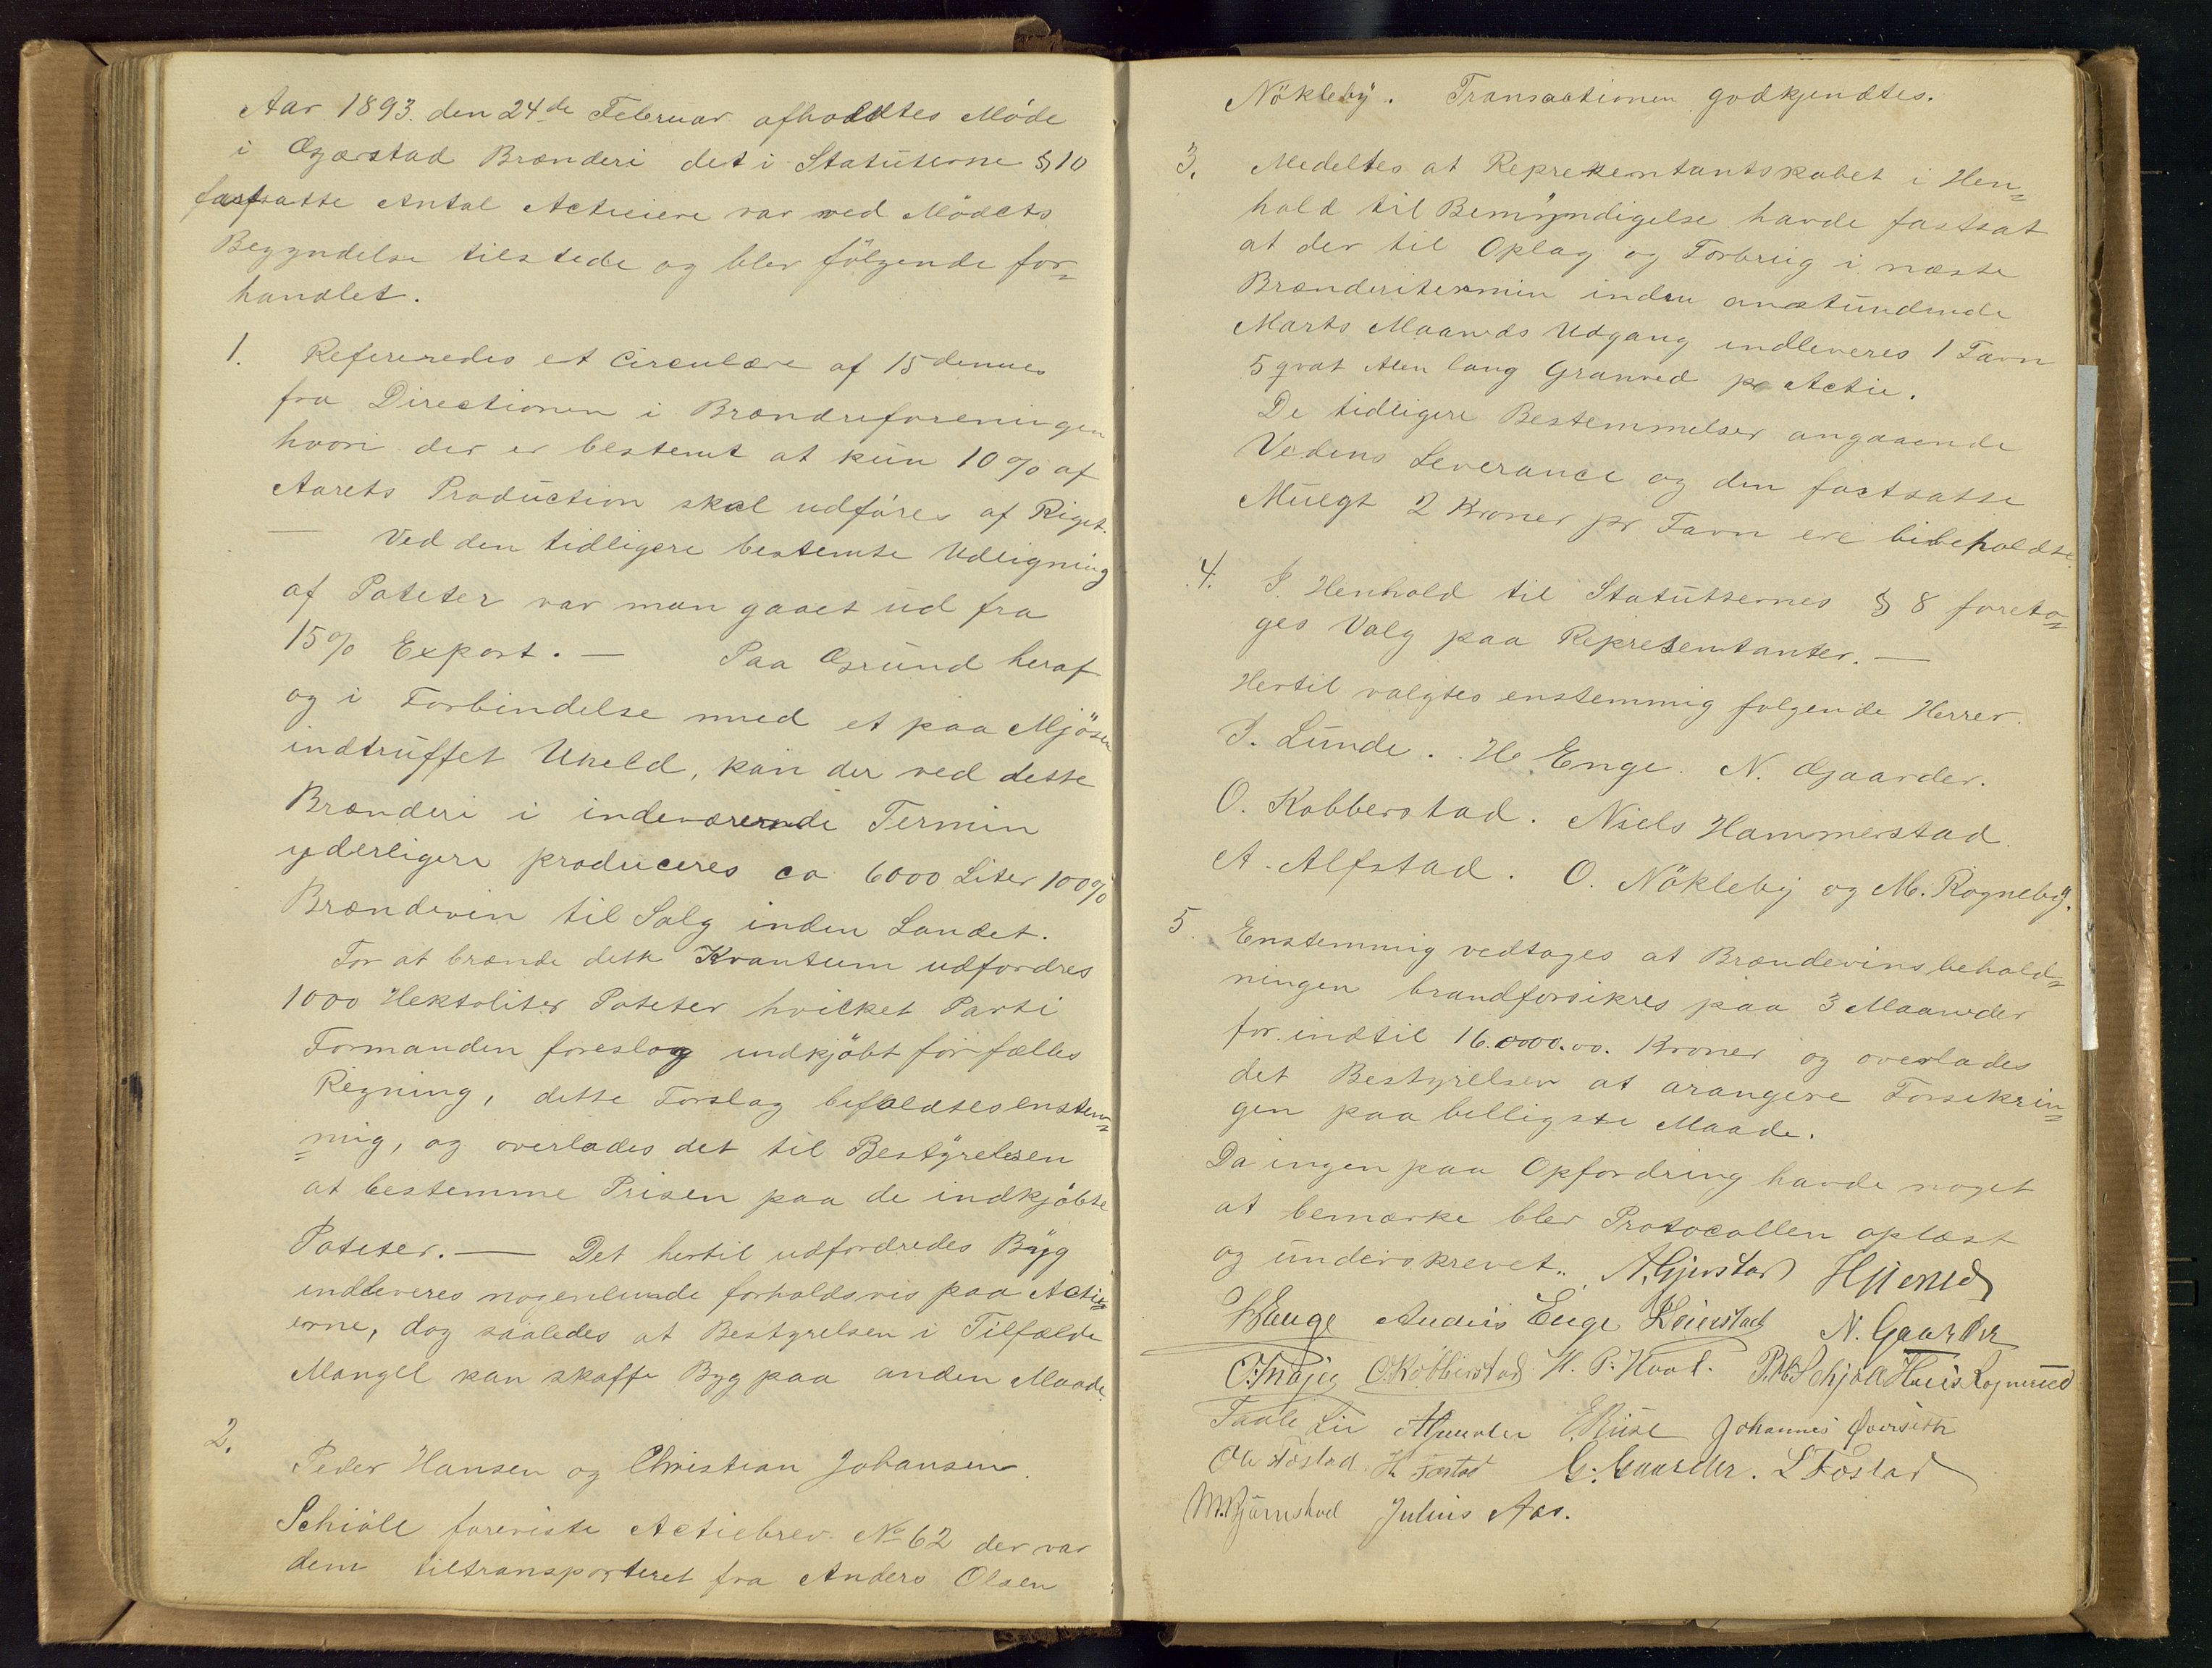 Aar 1893. den 24de Februar afholdtes Møde
i Gjærstad Brænderi det i Statuterne § 10
fastsatte Antal Actieiere var ved Mødets
Begyndelse tilstede og blev følgende for=
handlet.
1. Refereredes et Circulære af 15 dennes
fra Directionen i Brænderforeningen
hvori der er bestemt at kun 10 % af
Aarets Production skal udføres af Riget.
— Ved den tidligere bestemte Udligning
af Poteter var man gaaet ud fra
15 % Export. — Paa Grund heraf
og i Forbindelse med et paa Mjøsen
indtruffet Uheld, kan der ved dette
Brænderi i indeværende Termin
yderligere produceres ca 6000 Liter 100%
Brændevin til Salg inden Landet.
For at brænde dette Kvantum udfordres
1000 Hektoliter Poteter hvilket Parti
Formanden foreslog indkjøbt for fælles
Regning, dette Forslag bifaldtes enstem=
=mig, og overlades det til Bestyrelsen
at bestemme Prisen paa de indkjøbte
Poteter. — Det hertil udfordredes Byg
indleveres nogenlunde forholdsvis paa Acti=
erne, dog saaledes at Bestyrelsen i Tilfælde
Mangel kan skaffe Byg paa anden Maade.
2. Peder Hansen og Christian Johansen
Schiøll foreviste Actiebrev No 62 der var
dem tiltransporteret fra Anders Olsen
Nökleby. Transaationen godkjendtes.
3. Medeltes at Repræsentantskabet i Hen=
hold til Bemyndigelse havde fastsat
at der til Oplag og Forbrug i næste
Brænderitermin inden anstundende
Marts Maaneds Udgang indleveres 1 Favn
5 qvat Alen lang Granved pr Actie.
De tidligere Bestemmelser angaaende
Vedens Leverance og den fastsatte
Mulgt 2 Kroner pr Favn ere bibeholdte.
4. I Henhold til Statutternes § 8 foreto=
ges Valg paa Repræsentanter. —
Hertil valgtes enstemmig følgende Herrer.
I. Lunde. H. Enge. N. Gaarder.
O. Kobberstad. Niels Hammerstad.
A. Alfstad. O. Nökleby og M. Rogneby.
5. Enstemmig vedtages at Brændevinsbehold=
ningen brandforsikres paa 3 Maaneder
for indtil 16.0000.00. Kroner og overlades
det Bestyrelsen at arangere Forsikrin=
gen paa billigste Maade.
Da ingen paa Opfordring havde noget
at bemærke blev Protocollen oplæst
og underskrevet. A. Gjerstad
H Enge Anders Enge N. Gaarder
O. Kobberstad H. P. Hval. P. H. Schjøll Hans Rognerud
Taale Lie E. Riise Johannes
Ole Fostad H. Fostad G. Gaarder. L Fostad
M. Bjørnstad Julius Aas.